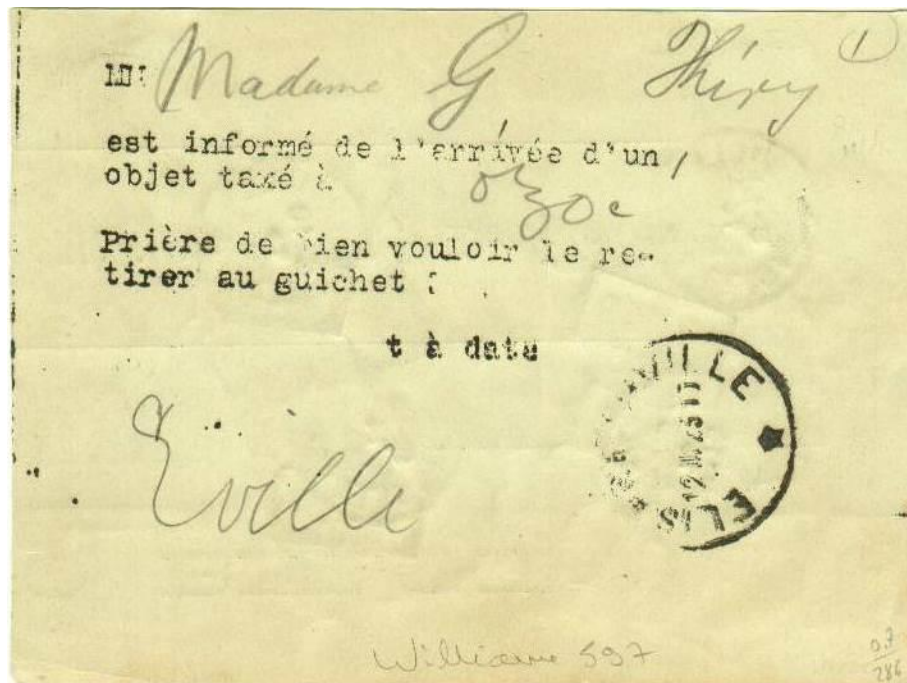 Madame G Thiry 1
est informé de l'arrivée d'un
objet taxé à 0,30c
Prière de bien vouloir le re-
tirer au guichet :
t à date
ELISABETHVILLE ★
Eville
Williame 597
0.7
286